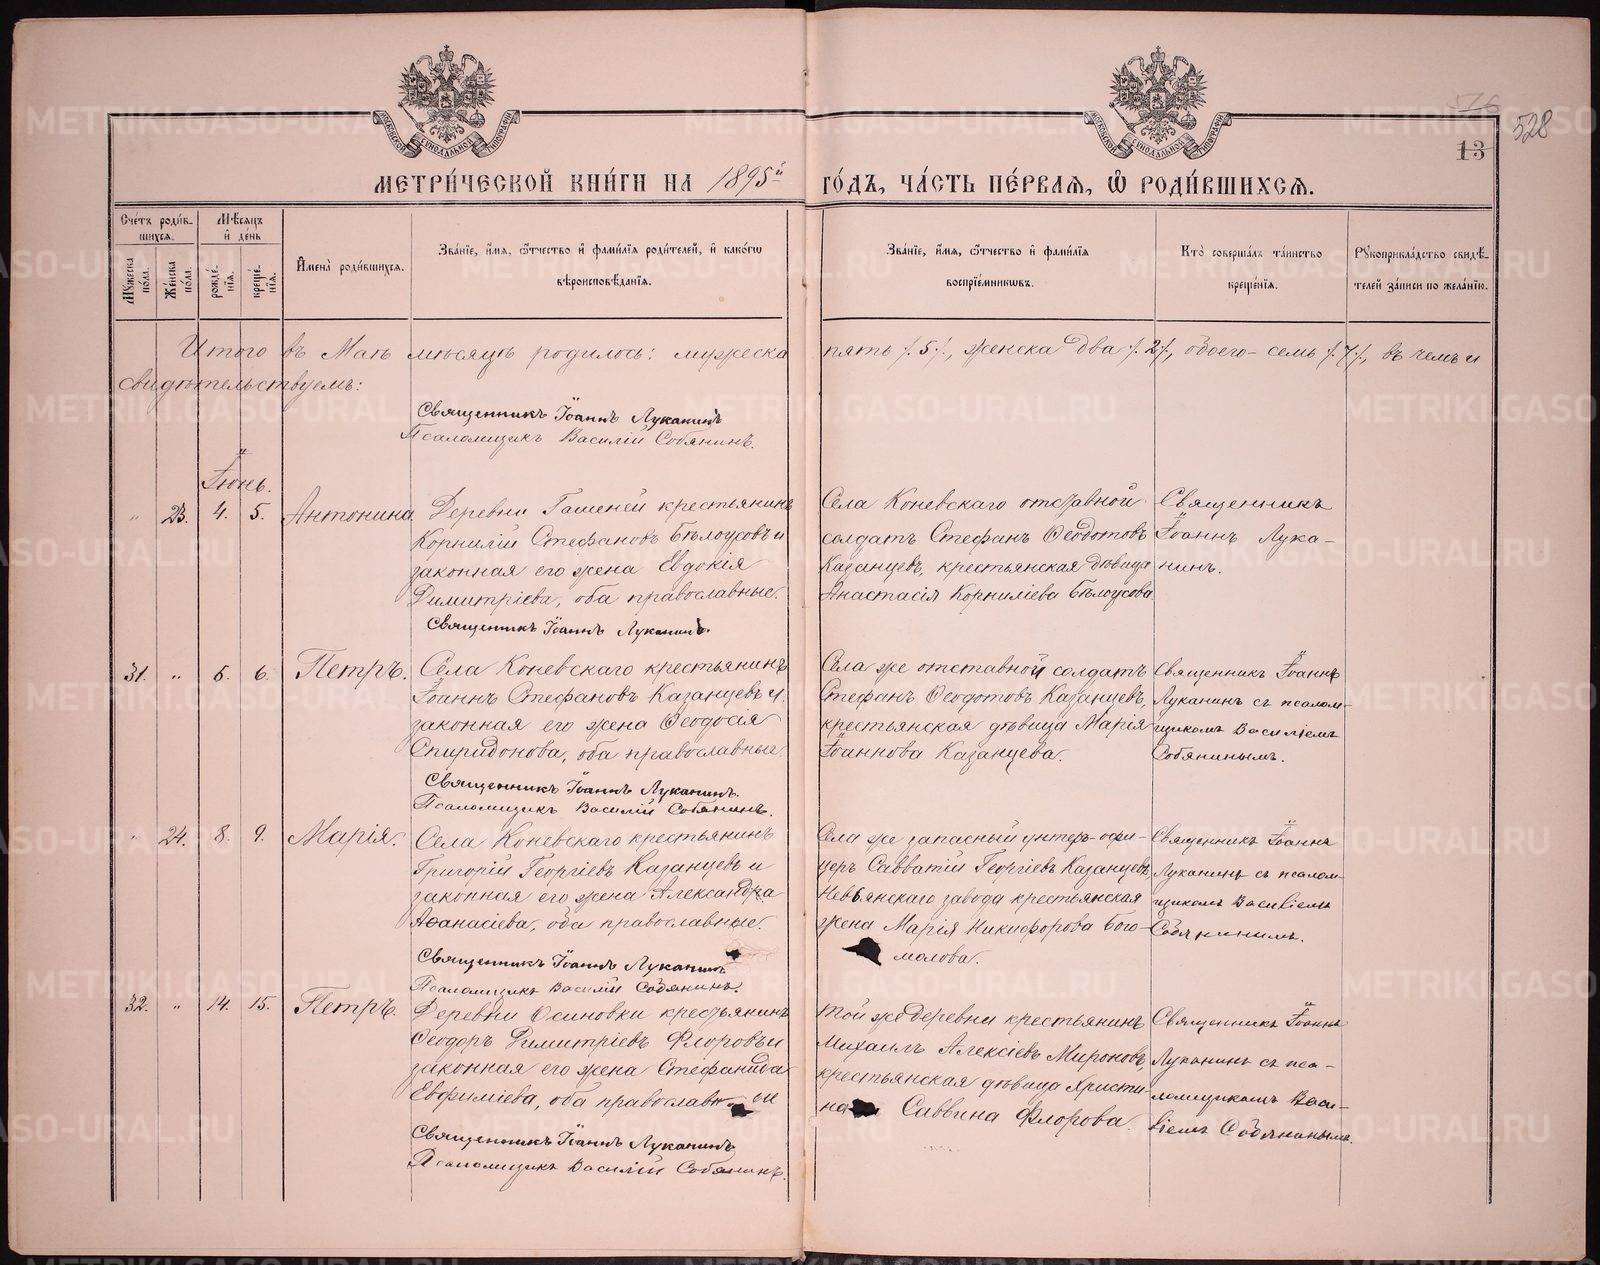 528
13
МЕТРИ́ЧЕСКОЙ КНИ́ГИ НА 1895й ГО́ДЪ, ЧА́СТЬ ПЕ́РВАѦ, Ѽ РОДИ́ВШИХСѦ.
Сче́тъ роди́в-
шихся.
Мѣсяцъ
и де́нь
Мꙋжеска по́ла.
Же́нска по́ла.
рожде́-
нїя.
креще́-
нїя.
Имена̀ роди́вшихся.
Зва́нїе, и́мя, ѻ҆́тчество и фами́лїя роди́телей, и како́гѡ
вѣроисповѣ́данїя.
Зва́нїе, и́мя, ѻ҆́тчество и фами́лїя
воспрїе́мникѡвъ.
Кто̀ соверша́лъ та́инство
креще́нїя.
Рꙋкоприкла́дство свидѣ́-
телей за́писи по жела́нїю.
Итого въ Маѣ мѣсяцѣ родилось: мужеска пять /.5./, женска два /.2./, обоего - семь /.7./, въ чемъ и
свидѣтельствуемъ:
Священникъ Іоаннъ Луканинъ
Псаломщикъ Василій Собянинъ.
Іюнь.
" 23. 4. 5. Антонина
Деревни Гашеней крестьянинъ
Корнилій Стефановъ Бѣлоусовъ и
законная его жена Евдокія
Димитріева, оба православные.
Священникъ Іоаннъ Луканинъ.
Села Коневскаго отставной
солдатъ Стефанъ Ѳеодотовъ
Казанцевъ, крестьянская дѣвица
Анастасія Корниліева Бѣлоусова
Священникъ
Іоаннъ Лука-
нинъ.
31. " 5. 6. Петръ.
Села Коневскаго крестьянинъ
Іоаннъ Стефановъ Казанцевъ и
законная его жена Ѳеодосія
Спиридонова, оба православные
Священникъ Іоаннъ Луканинъ.
Псаломщикъ Василій Собянинъ.
Села же отставной солдатъ
Стефанъ Ѳеодотовъ Казанцевъ,
крестьянская дѣвица Марія
Іоаннова Казанцева.
Священникъ Іоаннъ
Луканинъ съ псалом-
щикомъ Василіемъ
Собянинымъ.
" 24. 8. 9. Марія.
Села Коневскаго крестьянинъ
Григорій Георгіевъ Казанцевъ и
законная его жена Александра
Аѳанасіева, оба православные.
Священникъ Іоаннъ Луканинъ
Псаломщикъ Василій Собянинъ.
Села же запасный унтеръ-офи-
церъ Савватій Георгіевъ Казанцевъ,
Невьянскаго завода крестьянская
жена Марія Никифорова Бого-
молова.
Священникъ Іоаннъ
Луканинъ съ псалом-
щикомъ Василіемъ
Собянинымъ.
32. " 14. 15. Петръ.
Деревни Осиновки крестьянинъ
Ѳеодоръ Димитріевъ Флоровъ и
законная его жена Стефанида
Евфиміева, оба православные
Священникъ Іоаннъ Луканинъ
Псаломщикъ Василій Собянинъ.
Той же деревни крестьянинъ
Михаилъ Алексіевъ Мироновъ,
крестьянская дѣвица Христи-
на Саввина Флорова.
Священникъ Іоаннъ
Луканинъ съ пса-
ломщикомъ Васи-
ліемъ Собянинымъ.
METRIKI.GASO-URAL.RU